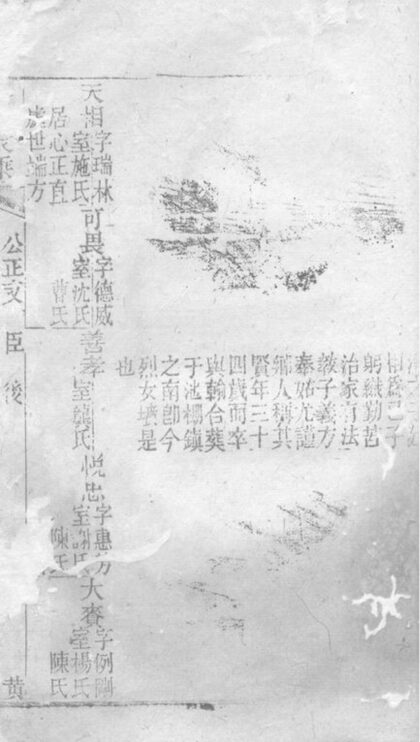 相爲己子
躬績勤苦
治家有法
教子義方
奉姑尤謹
鄉人稱其
賢年三十
四歲而卒
與翰台葬
于池棚鎮
之南卽今
烈女壙是
也
天相
字瑞林
室施氏
居心正直
處世端方
可畏
字德威
室沈氏
曹氏
善孝
室龔氏
悅忠
字惠
室謝氏
陳氏
大賚
字例剛
室楊氏
陳氏
乘
公正支
臣後
黃